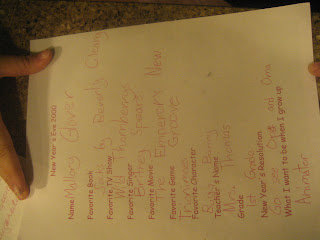 New Year's Eve 2000
Name: Mallory Glover
Favorite Book
by Beverly Cleary
Favorite TV Show
Wild Thornberrys
Favorite Singer
Britney Spears
Favorite Movie
The Emperors New
Groove
Favorite Game
Favorite Character
Bugs Bunny
Teacher's Name
Mrs. Thomas
Grade
Grade
New Year's Resolution
Go see Chet and Oma
What I want to be when I grow up
Animator